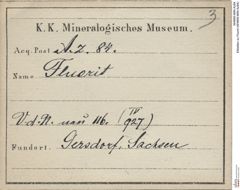 3
K. K. Mineralogisches Museum.
Acq. Post A. z. 84.
Name Fluorit
IV
V. d. N. 116. (927)
Fundort. Gersdorf, Sachsen